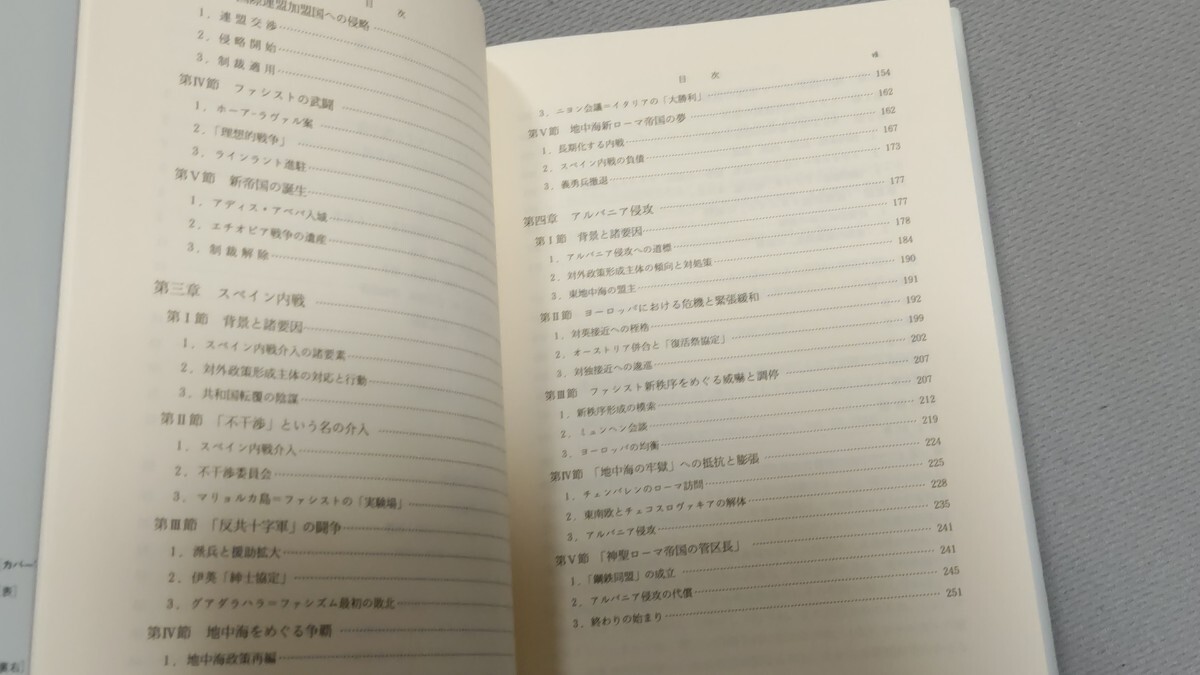 目 次
国際連盟加盟国への侵略
1．連盟交渉
2．侵略開始
3．制裁適用
第Ⅳ節 ファシストの武闘
1．ホーア-ラヴァル案
2．「理想的戦争」
3．ラインラント進駐
第Ⅴ節 新帝国の誕生
1．アディス・アベバ入城
2．エチオピア戦争の遺産
3．制裁解除
第三章 スペイン内戦
第Ⅰ節 背景と諸要因
1．スペイン内戦介入の諸要素
2．対外政策形成主体の対応と行動
3．共和国転覆の陰謀
第Ⅱ節 「不干渉」という名の介入
1．スペイン内戦介入
2．不干渉委員会
3．マリョルカ島＝ファシストの「実験場」
第Ⅲ節 「反共十字軍」の闘争
1．派兵と援助拡大
2．伊英「紳士協定」
3．グアダラハラ＝ファシズム最初の敗北
第Ⅳ節 地中海をめぐる争覇
1．地中海政策再編
［カバー
［表］
裏右］
目 次
3．ニヨン会議＝イタリアの「大勝利」 154
第Ⅴ節 地中海新ローマ帝国の夢 162
1．長期化する内戦 162
2．スペイン内戦の負債 167
3．義勇兵撤退 173
第四章 アルバニア侵攻 177
第Ⅰ節 背景と諸要因 177
1．アルバニア侵攻への道標 178
2．対外政策形成主体の傾向と対処策 184
3．東地中海の盟主 190
第Ⅱ節 ヨーロッパにおける危機と緊張緩和 191
1．対英接近への桎梏 192
2．オーストリア併合と「復活祭協定」 199
3．対独接近への逡巡 202
第Ⅲ節 ファシスト新秩序をめぐる威嚇と調停 207
1．新秩序形成の模索 207
2．ミュンヘン会談 212
3．ヨーロッパの均衡 219
第Ⅳ節 「地中海の牢獄」への抵抗と膨張 224
1．チェンバレンのローマ訪問 225
2．東南欧とチェコスロヴァキアの解体 228
3．アルバニア侵攻 235
第Ⅴ節 「神聖ローマ帝国の管区長」 241
1．「鋼鉄同盟」の成立 241
2．アルバニア侵攻の代償 245
3．終わりの始まり 251